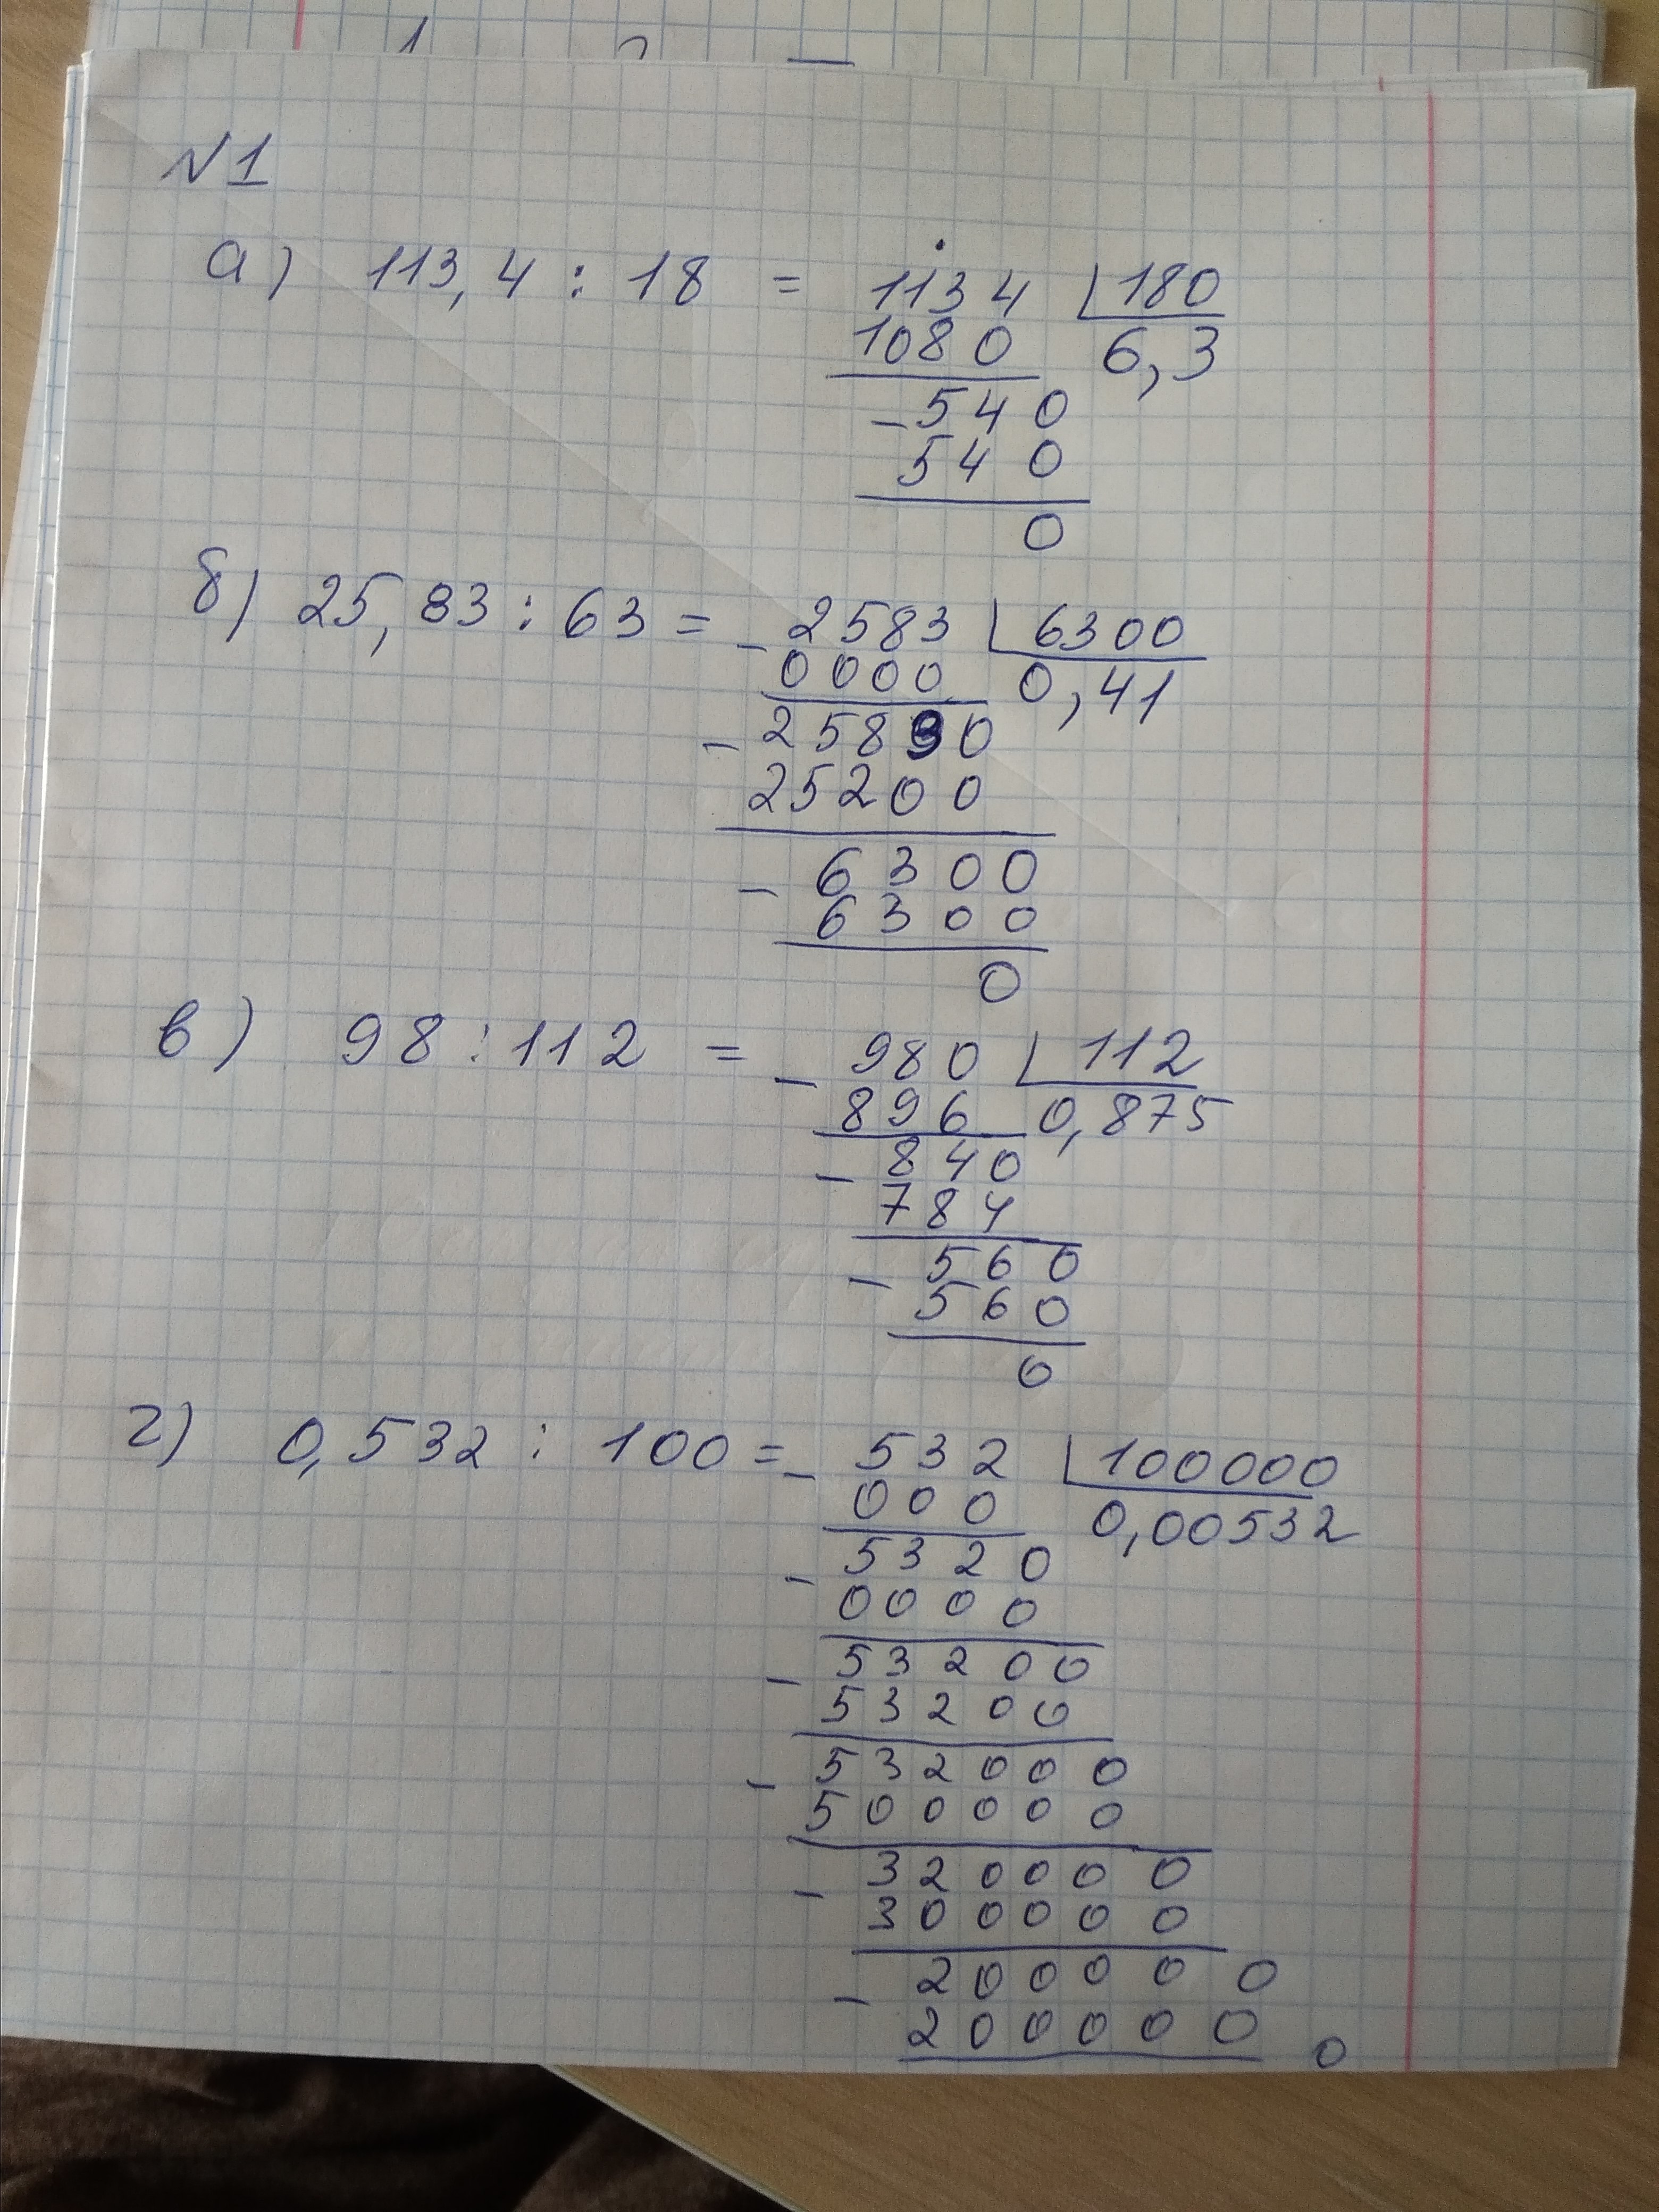 №1
а) 113,4 : 18 = 1134 | 180
1080 6,3
- 540
540
0
б) 25,83 : 63 = - 2583 | 6300
0000 0,41
- 25830
25200
- 6300
6300
0
в) 98 : 112 = - 980 | 112
896 0,875
- 840
784
- 560
560
0
г) 0,532 : 100 = - 532 | 100000
000 0,00532
- 5320
0000
- 53200
53200
- 532000
500000
- 320000
300000
- 200000
200000
0